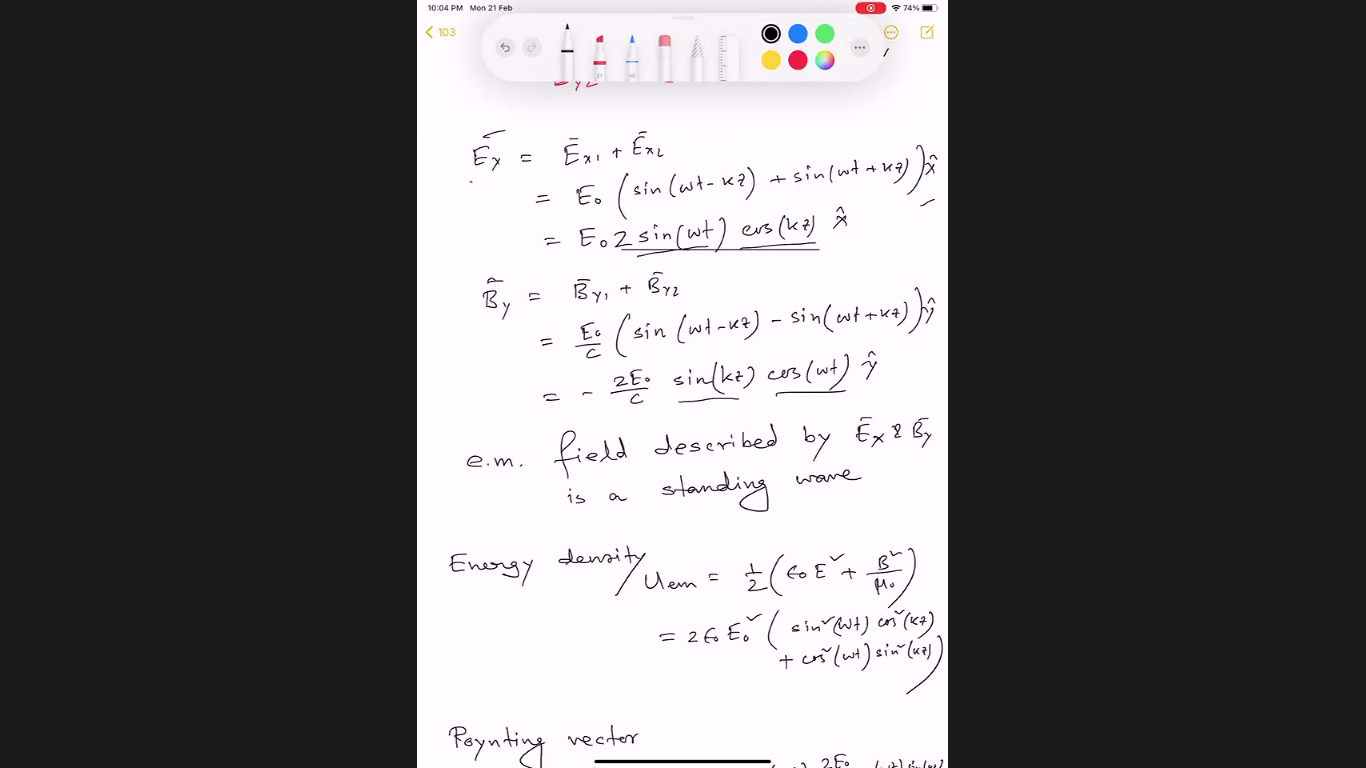 10:04 PM Mon 21 Feb
74%
103
By2
Ēx = Ēx1 + Ēx2
= E0 (sin(wt-kz) + sin(wt+kz)) x̂
= E0 2 sin(wt) cos(kz) x̂
B̄y = B̄y1 + B̄y2
= E0/c (sin(wt-kz) - sin(wt+kz)) ŷ
= - 2E0/c sin(kz) cos(wt) ŷ
e.m. field described by Ēx & B̄y
is a standing wave
Energy density / Uem = 1/2 (ε0 E² + B²/μ0)
= 2 ε0 E0² ( sin²(wt) cos²(kz)
+ cos²(wt) sin²(kz) )
Poynting vector
2E0